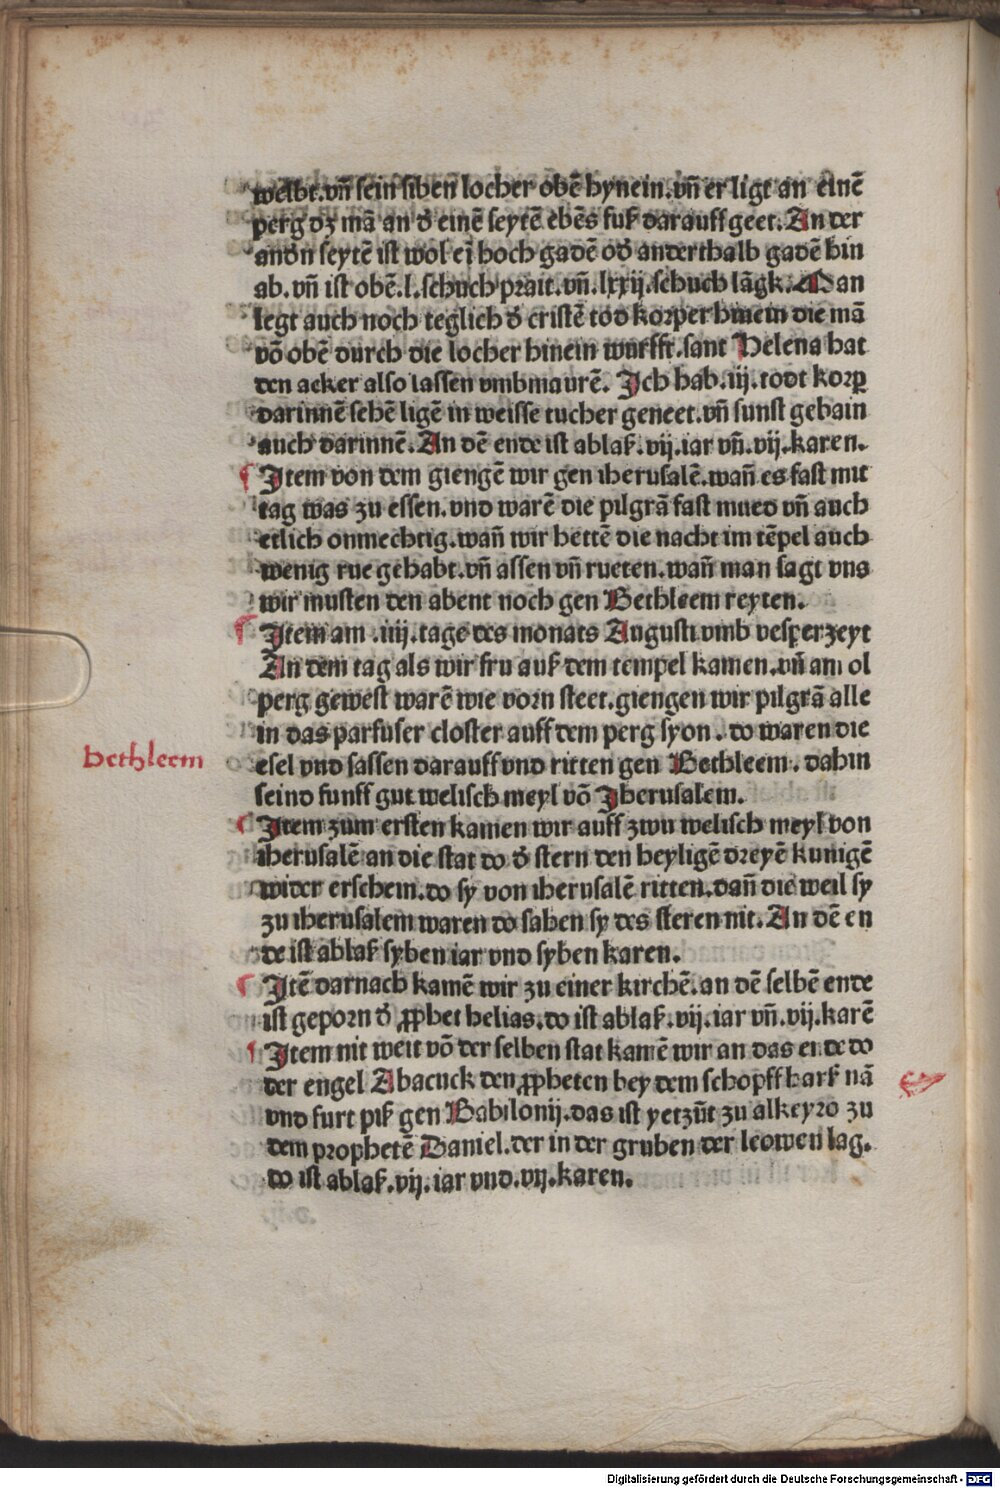 welbt.vñ sein siben locher obē hynein.vñ er ligt an einē
perg dz mā an d̕ einē seytē ebēs fuß darauff geet. An der
andn̄ seytē ist wol eī hoch gadē od̕ anderthalb gadē hin
ab.vñ ist obē.l.schuch prait.vñ.lxxij.schuch lāgk. Man
legt auch noch teglich d̕ cristē tod korper hinein die mā
vō obē durch die locher hinein wurfft.sant Helena hat
den acker also lassen vmbmaurē. Ich hab.iij.todt korp̄
darinnē sehē ligē in weisse tucher geneet.vñ sunst gebain
auch darinnē. An dē ende ist ablaß.vij.iar vñ.vij.karen.
¶ Item von dem giengē wir gen iherusalē.wañ es fast mit
tag was zu essen.vnd warē die pilgrā fast mued vñ auch
etlich onmechtig.wañ wir hettē die nacht im tēpel auch
wenig rue gehabt.vñ assen vñ rueten.wañ man sagt vns
wir musten den abent noch gen Bethleem reyten.
¶ Item am .iiij.tage des monats Augusti vmb vesperzeyt
An dem tag als wir fru auß dem tempel kamen.vñ am ol
perg gewest warē wie vorn steet.giengen wir pilgrā alle
in das parfuser closter auff dem perg syon. do waren die
bethleem
esel vnd sassen darauff vnd ritten gen Bethleem. dahin
seind funff gut welisch meyl vō Iherusalem.
¶ Item zum ersten kamen wir auff zwu welisch meyl von
iherusalē an die stat do d̕ stern den heyligē dreyē kunigē
wider erschein.do sy von iherusalē ritten.dañ die weil sy
zu iherusalem waren do sahen sy des steren nit. An dē en
de ist ablaß syben iar vnd syben karen.
¶ Itē darnach kamē wir zu einer kirchē.an dē selbē ende
ist geporn d̕ ꝓphet helias.do ist ablaß.vij.iar vñ.vij.karē
¶ Item nit weit vō der selben stat kamē wir an das ende do
der engel Abacuck den ꝓpheten bey dem schopff harß nā
vnd furt piß gen Babilonij.das ist yetzūt zu alkeyro zu
dem prophetē Daniel.der in der gruben der leowen lag.
do ist ablaß.vij.iar vnd.vij.karen.
Digitalisierung gefördert durch die Deutsche Forschungsgemeinschaft - DFG